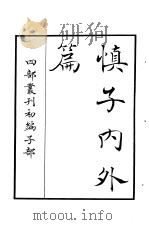 慎子内外
篇
四部叢刊初編子部
mtoou.info